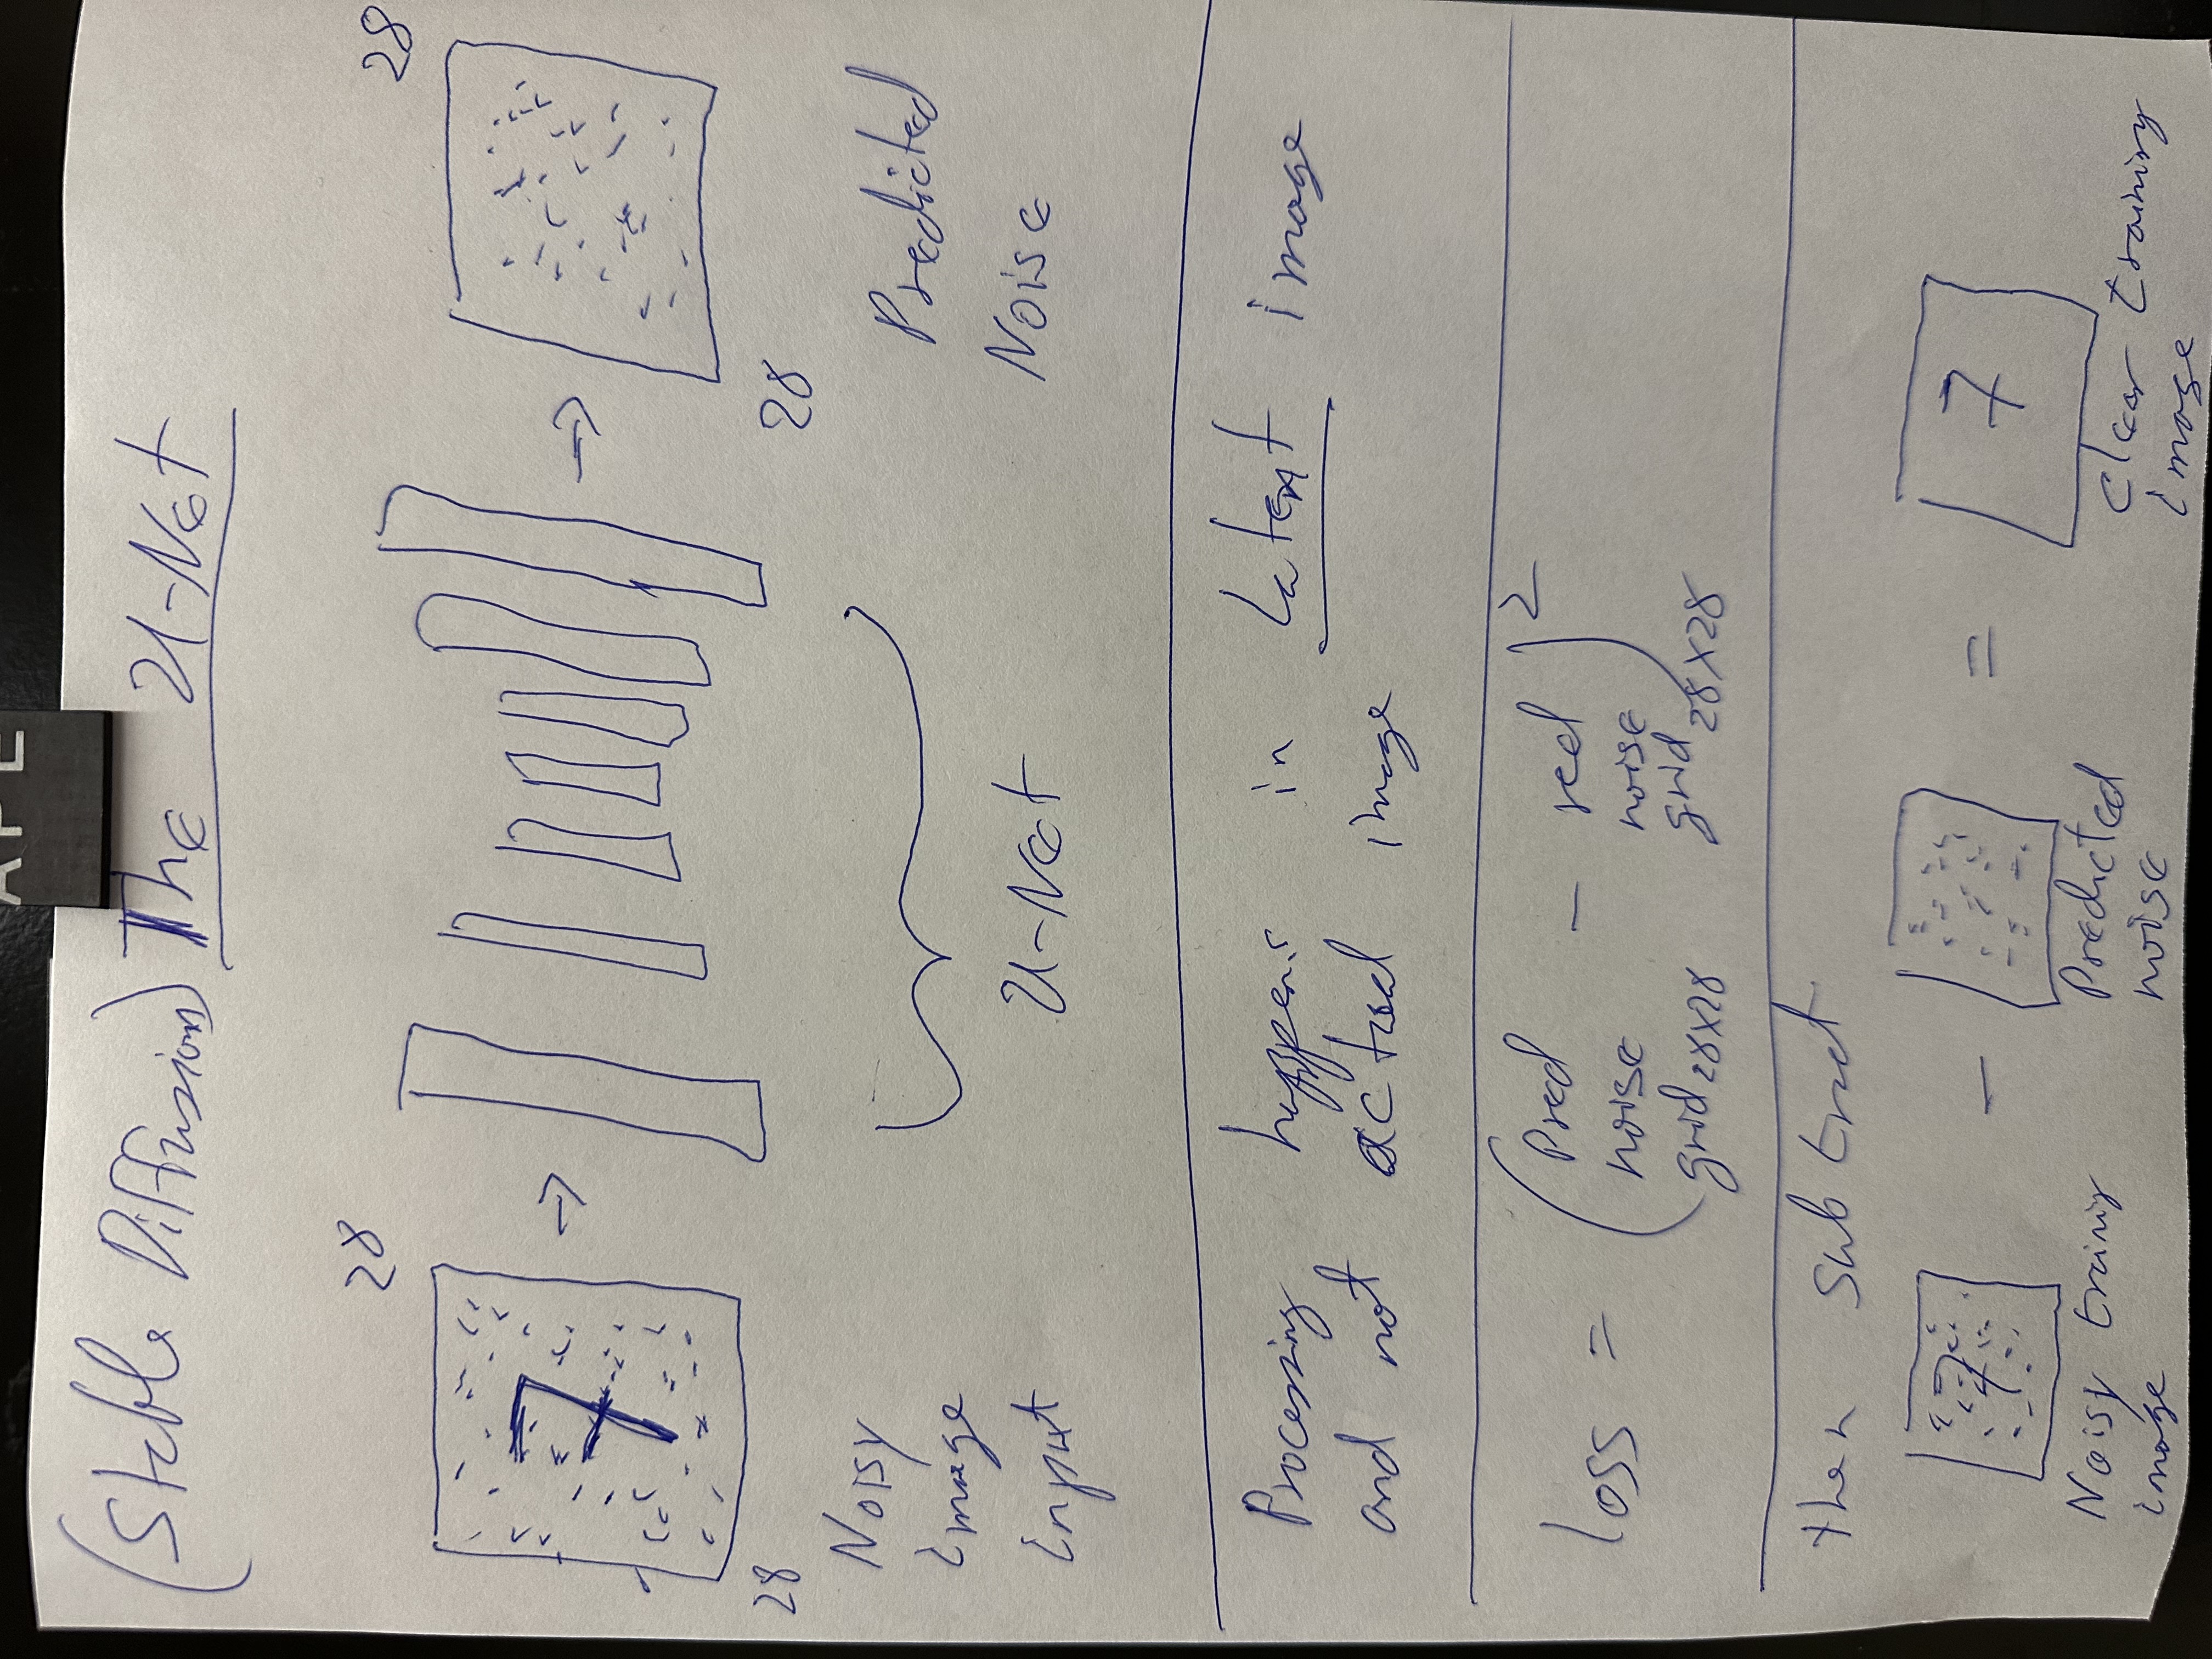 APE
(Stable Diffusion) The U-Net
28
28
28
28
Noisy
image
input
U-Net
Predicted
Noise
Processing happens in Latent image
and not actual image
loss = (Pred noise grid 28x28 - real noise grid 28x28)2
then subtract
- =
7
Noisy training
image
Predicted
noise
Clear training
image